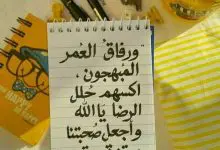 "ورفاقُ العُمر
المُبهجون،
اكسهم حُلل
الرضا ياالله
وأجعل صُحبتنا